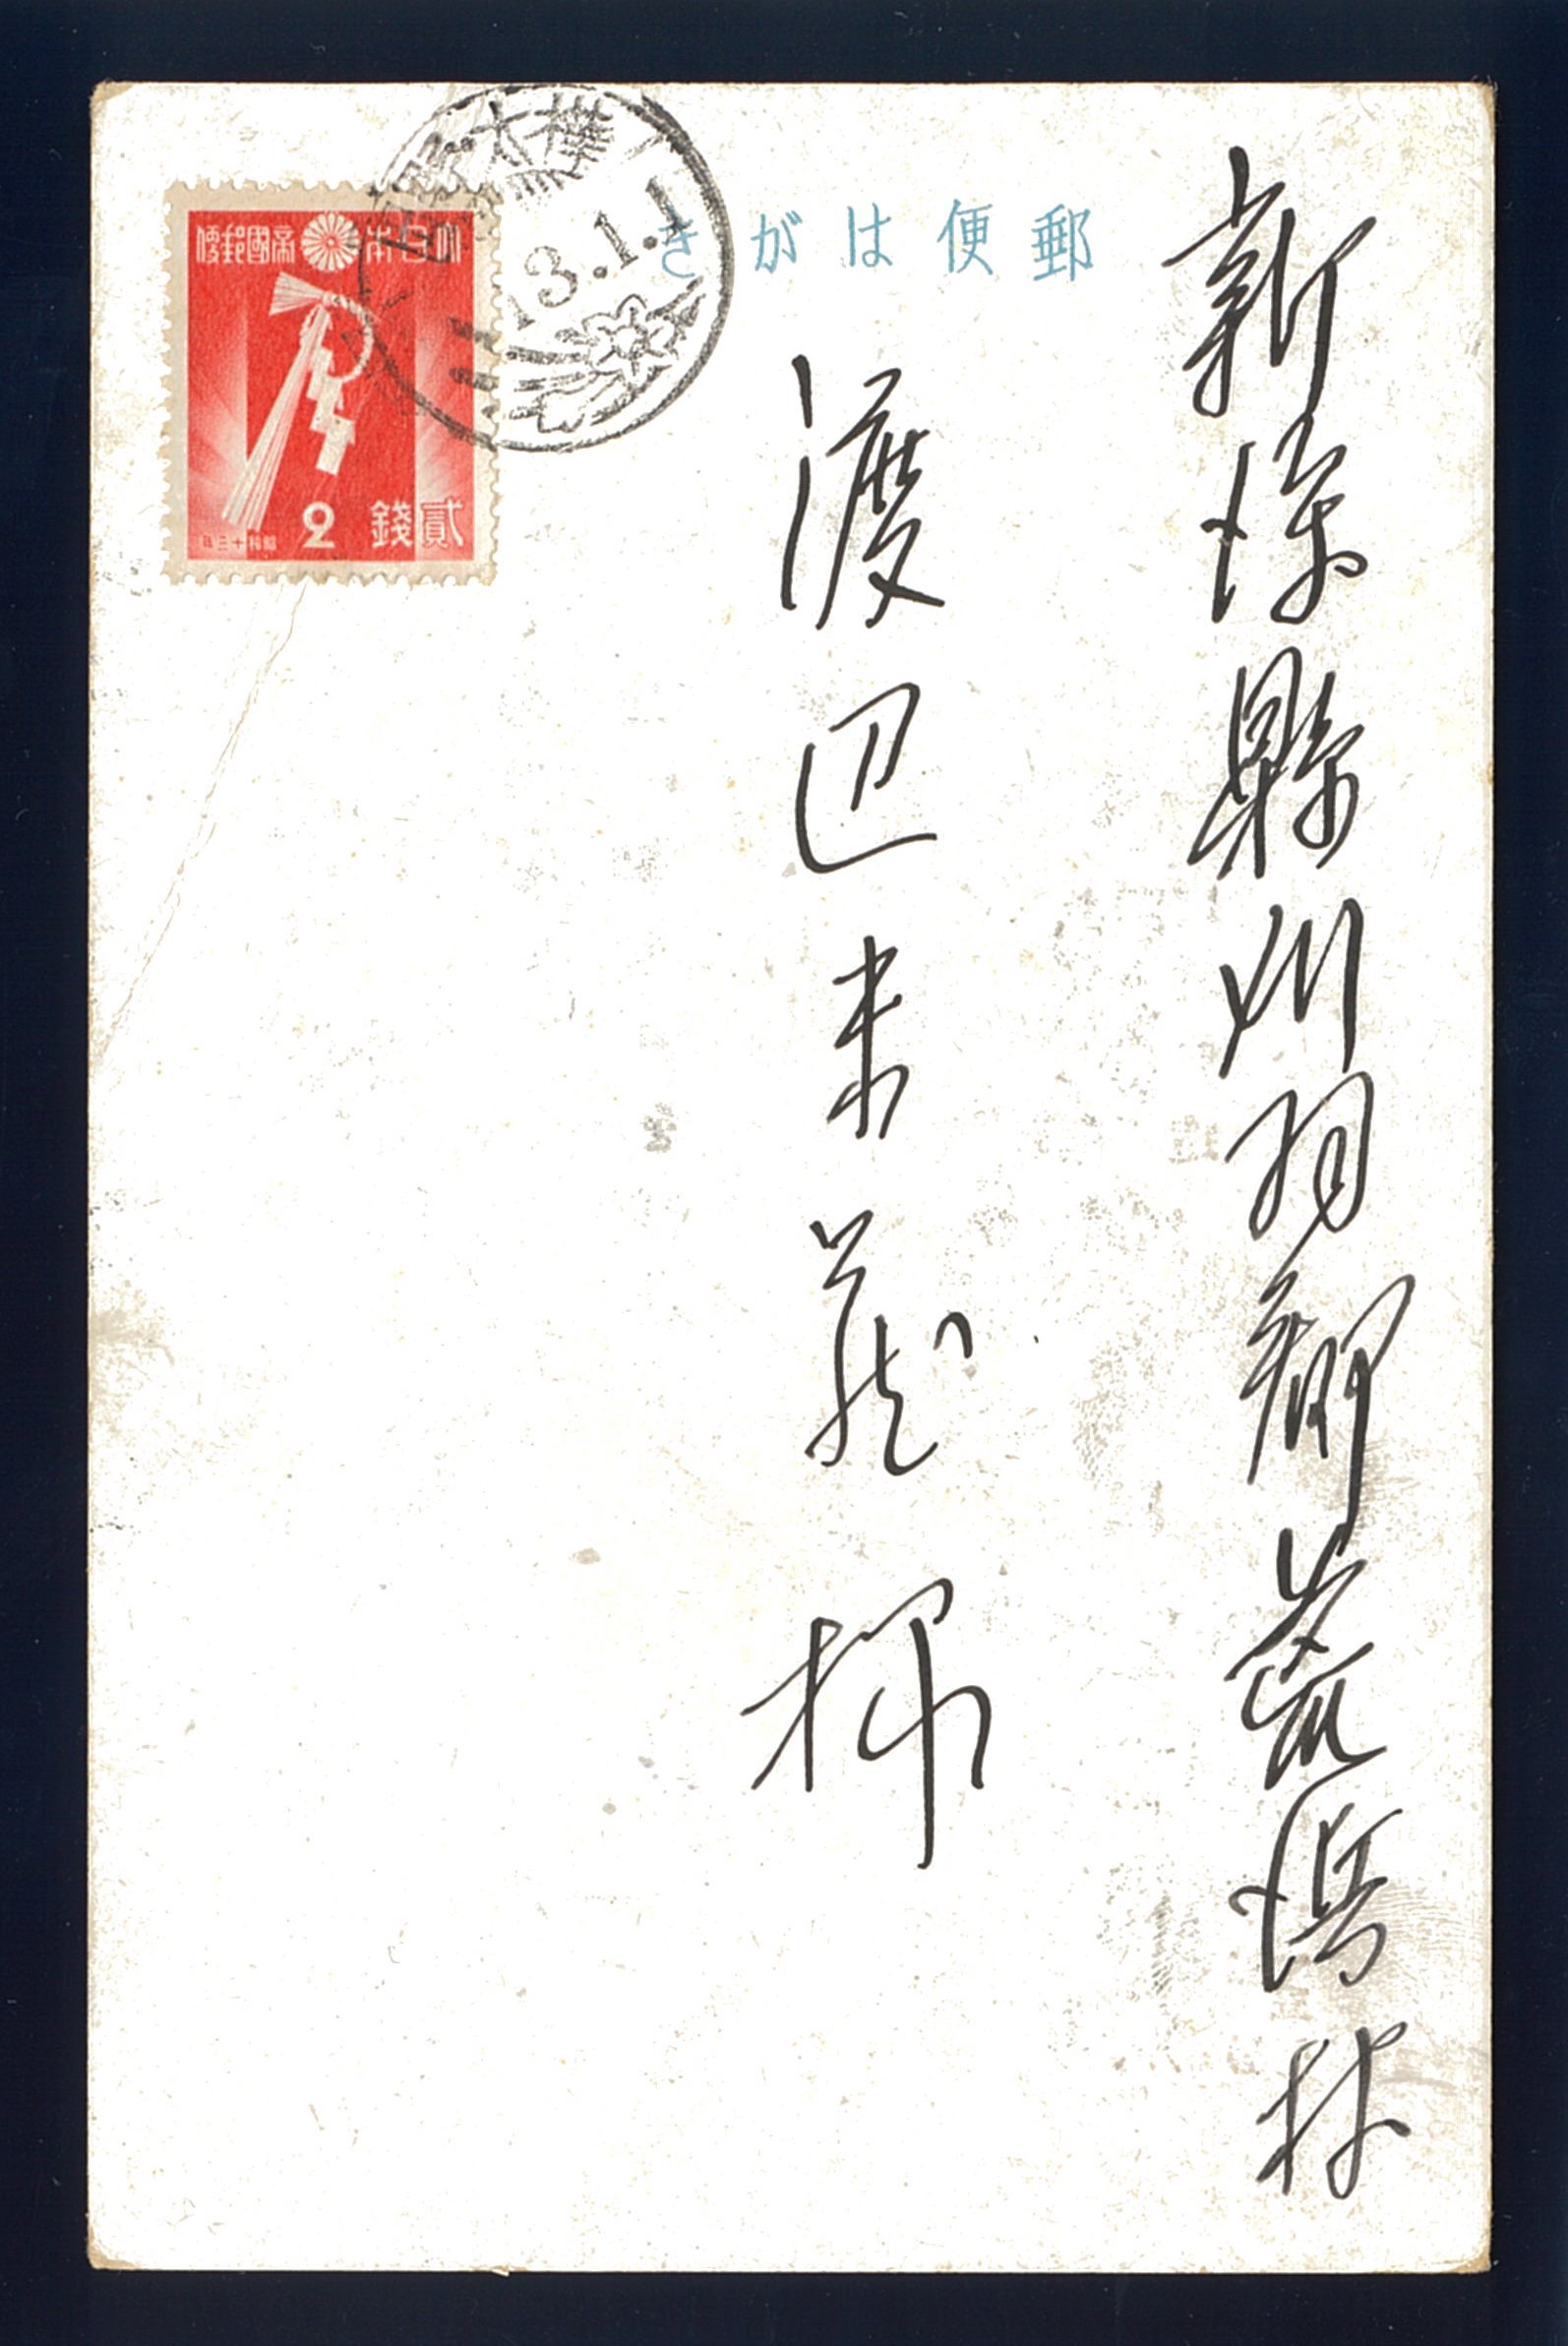 新潟縣刈羽郡荒濱村
渡辺
蔵 様
郵便はがき
大日本帝國郵便
貳錢 2
昭和十三年
樺太
13.1.1